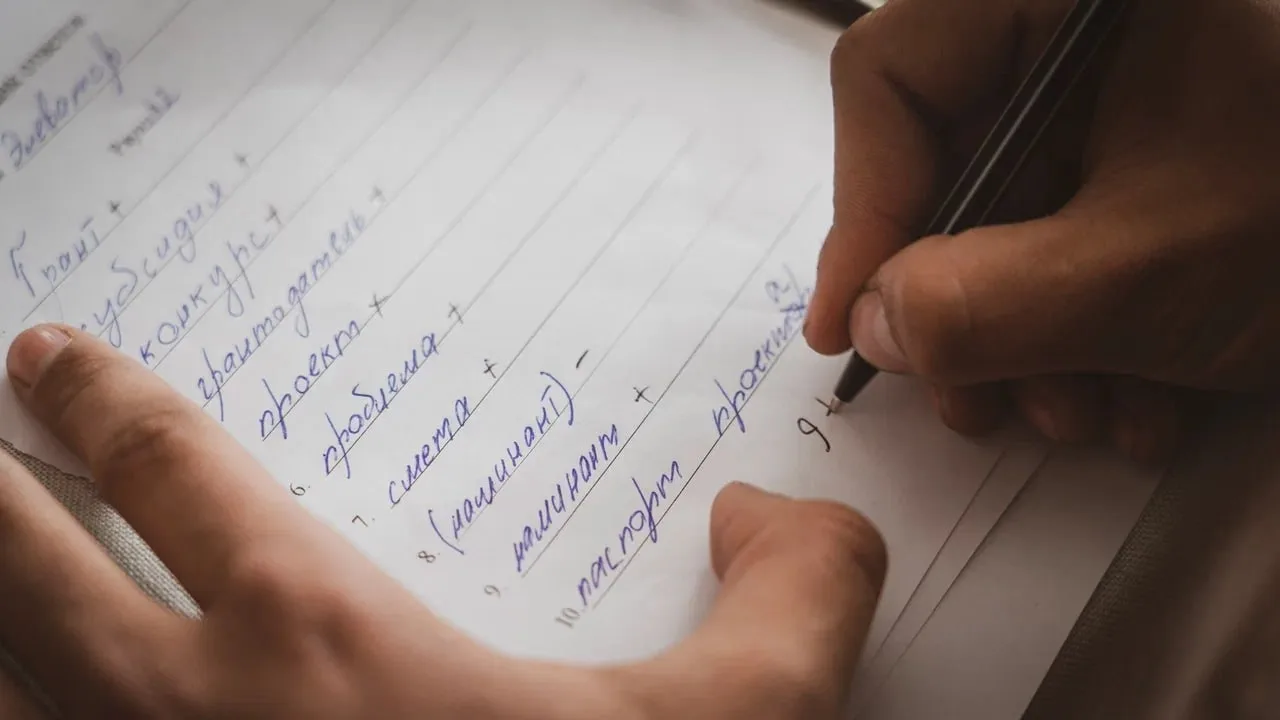 Элеватор
Грант +
субсидия +
конкурс +
грантодатель +
проект +
6. проблема +
7. смета +
8. (наминант) -
9. наминант +
10. паспорт проекта
9+